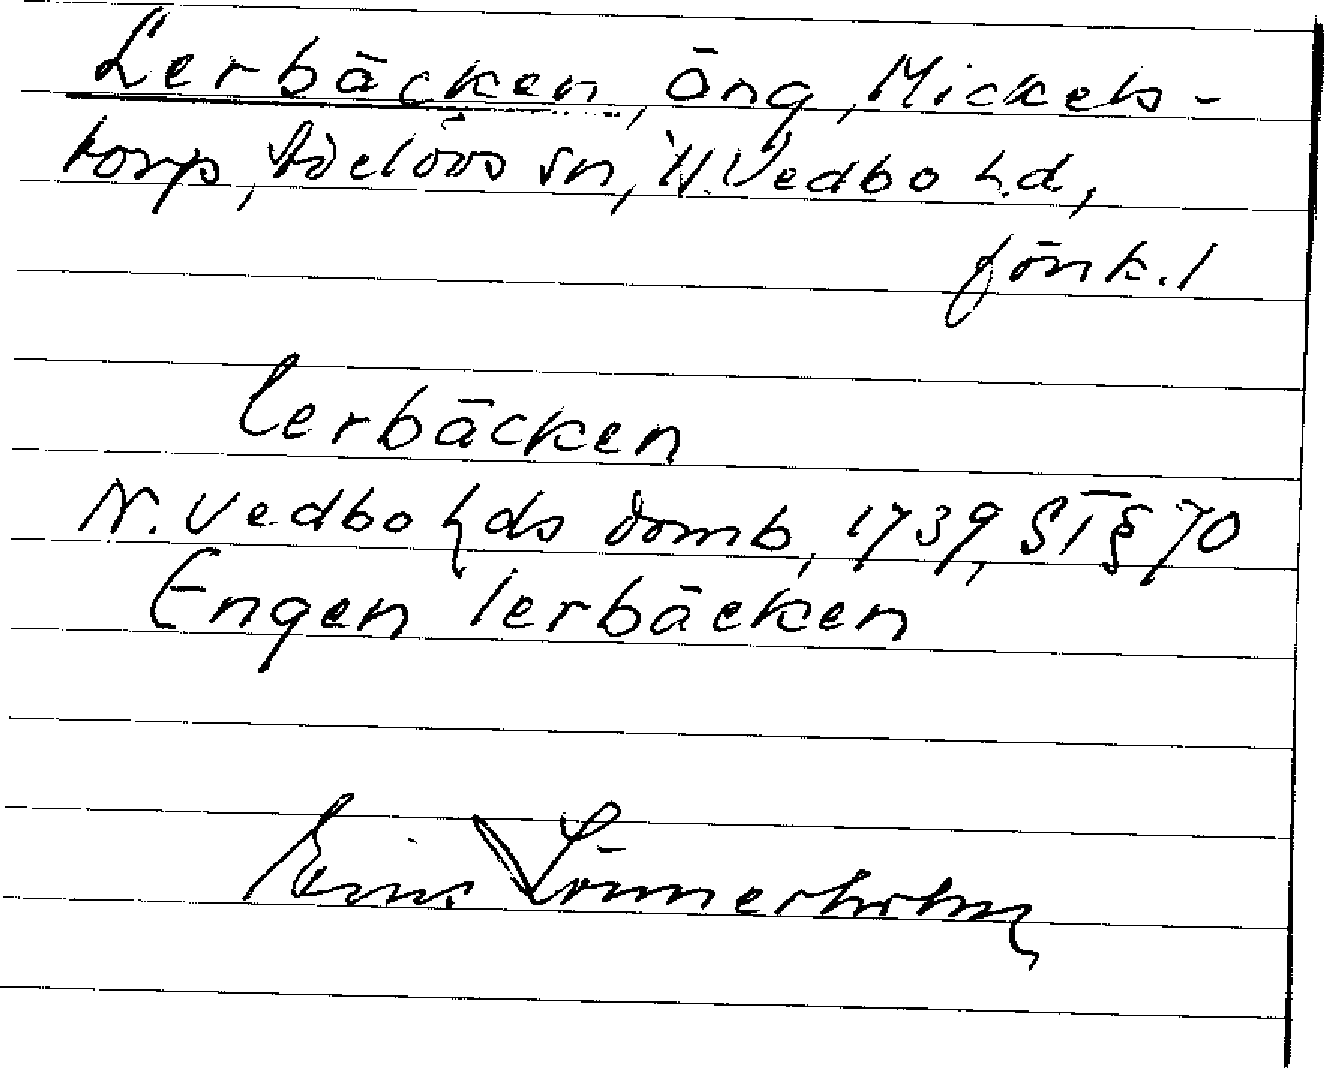 Lerbäcken, äng, Mickels-
torp, Adelövs sn, N. Vedbo h.d,
Jönk. l
lerbäcken
N. Vedbo hds domb, 1739, ST § 70
Engen lerbäcken
Lönnerholm